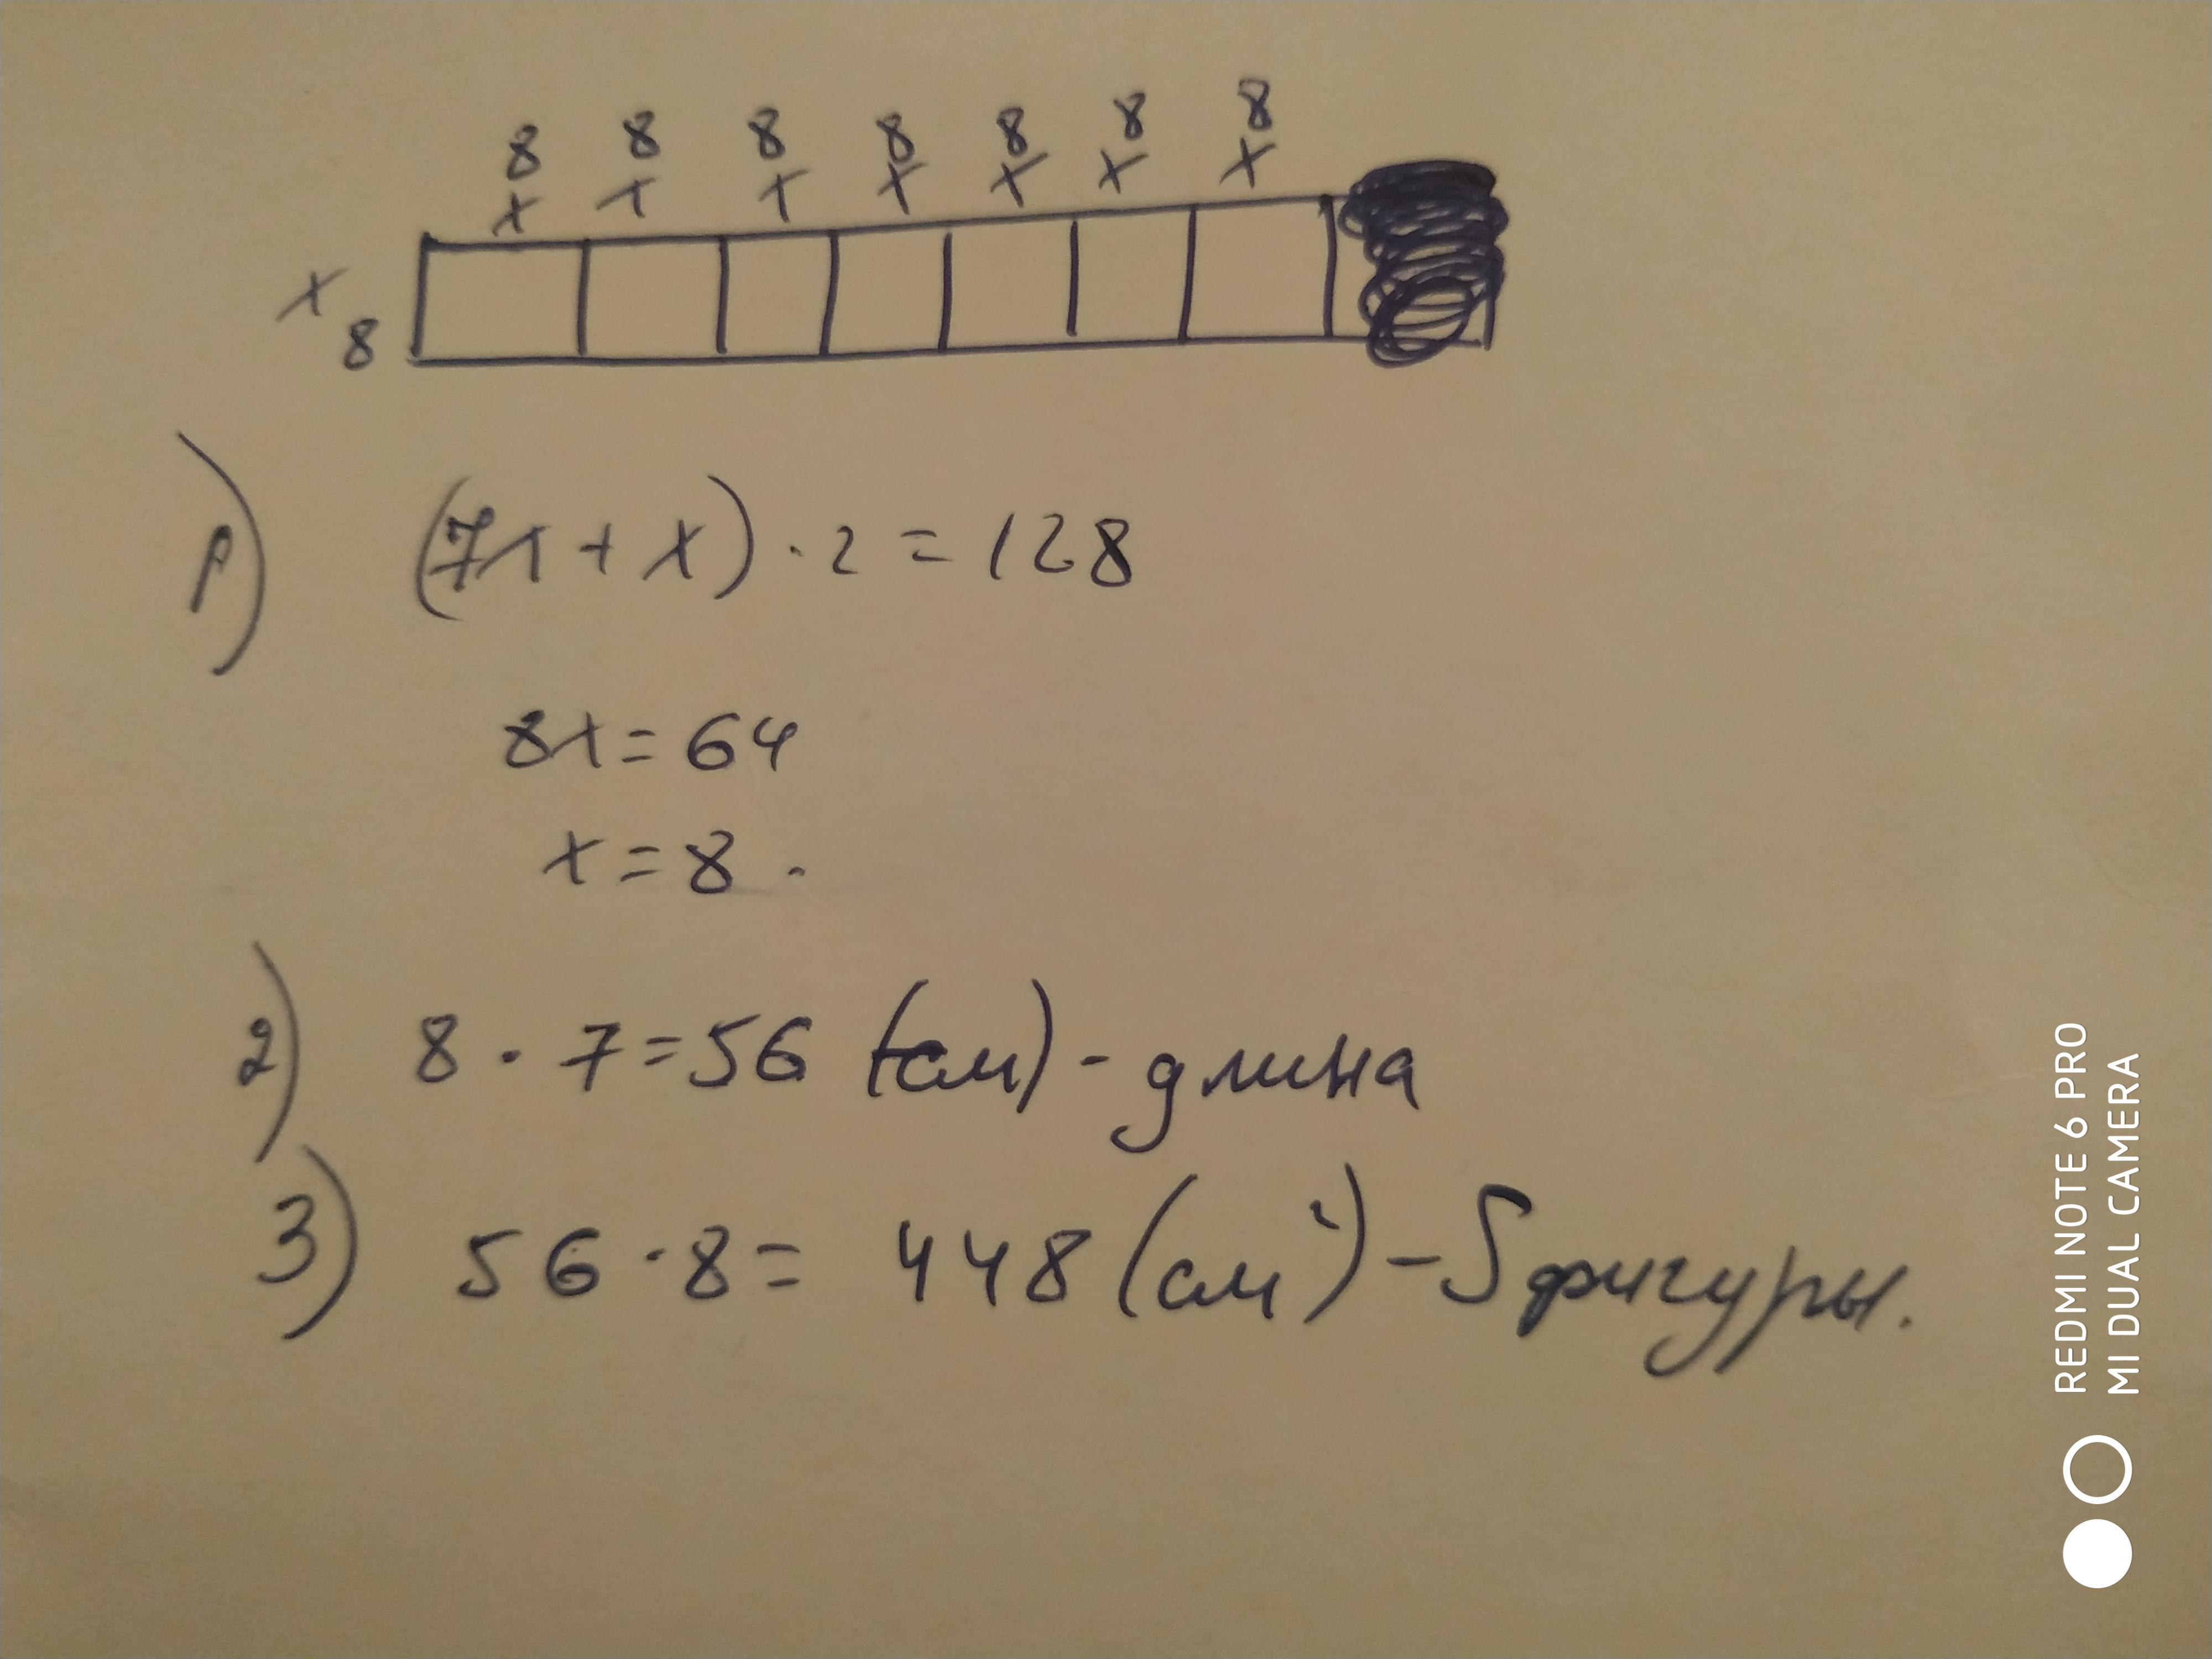 8 8 8 8 8 8 8
x x x x x x x
x
8
1) (7x + x) · 2 = 128
8x = 64
x = 8 .
2) 8 · 7 = 56 (см) - длина
3) 56 · 8 = 448 (см²) - S фигуры.
REDMI NOTE 6 PRO
MI DUAL CAMERA